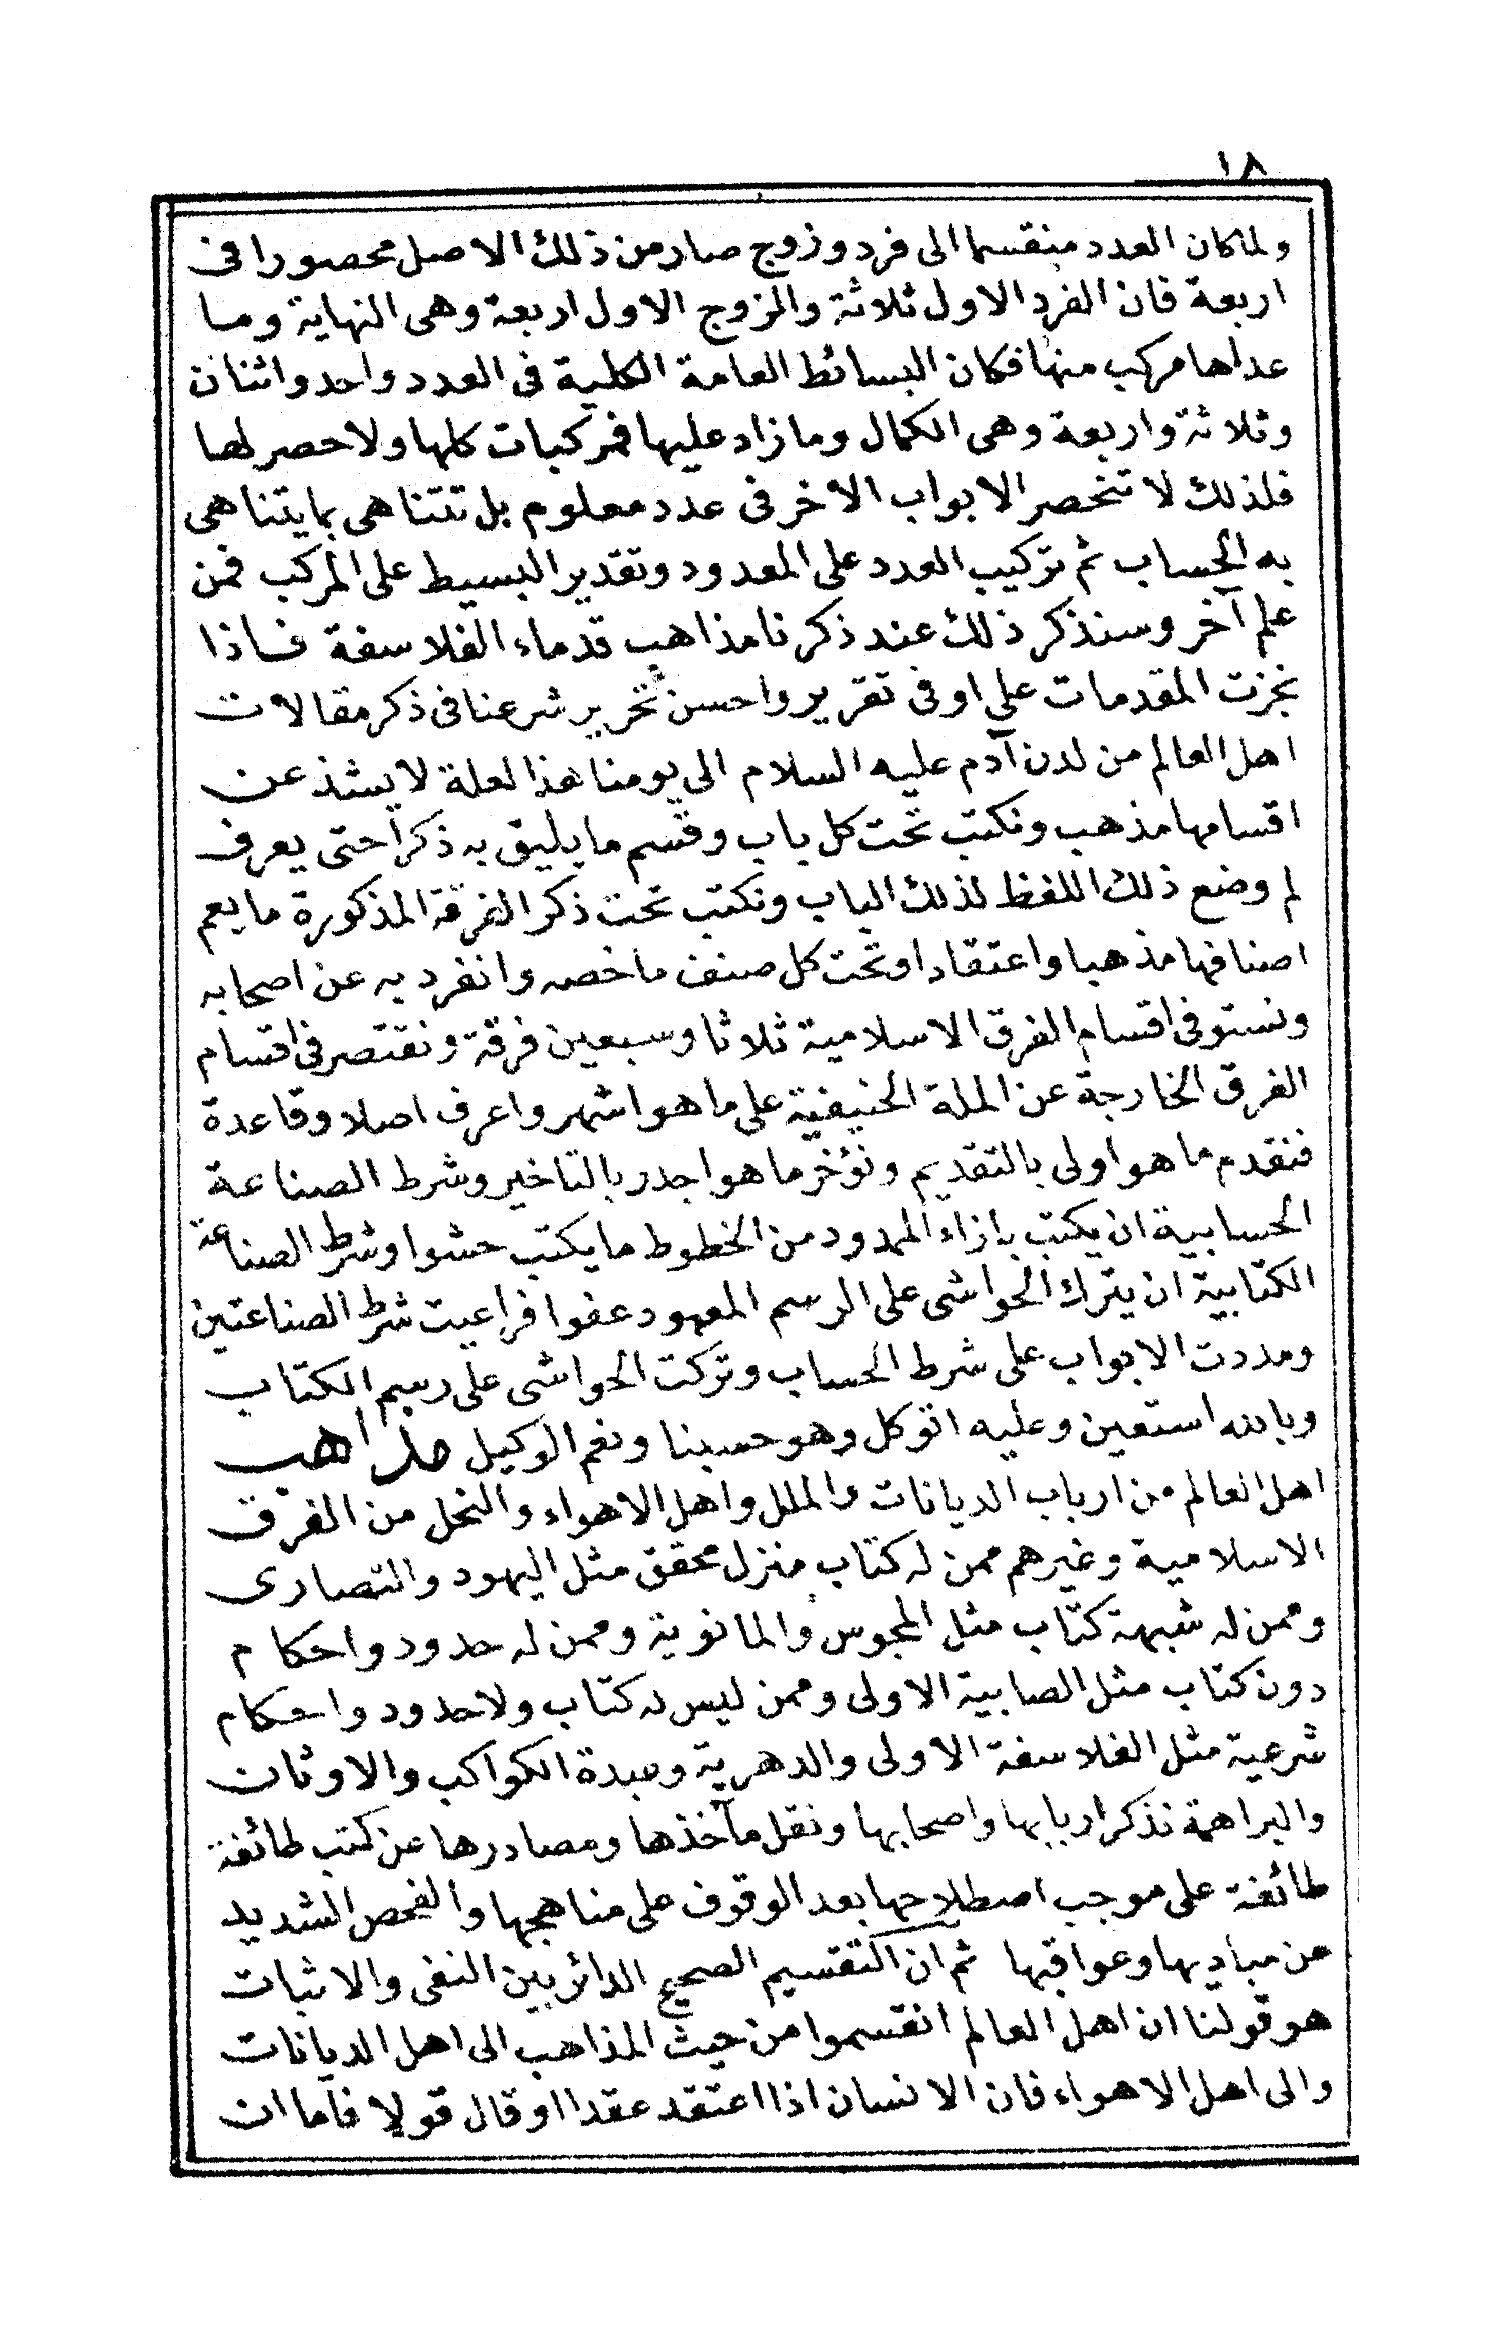 ١٨
ولما كان العدد منقسما الى فرد وزوج صار من ذلك الاصل محصورا فى
اربعة فان الفرد الاول ثلاثة والزوج الاول اربعة وهى النهاية وما
عداها مركب منها فكان البسائط العامة الكلية فى العدد واحد واثنان
وثلاثة واربعة وهى الكمال وما زاد عليها فمركبات كلها ولا حصر لها
فلذلك لا تنحصر الابواب الاخر فى عدد معلوم بل تتناهى بما يتناهى
به الحساب ثم تركيب العدد على المعدود وتقدير البسيط على المركب فمن
علم آخر وسنذكر ذلك عند ذكرنا مذاهب قدماء الفلاسفة فاذا
نجزت المقدمات على اوفى تقرير واحسن تحرير شرعنا فى ذكر مقالات
اهل العالم من لدن آدم عليه السلام الى يومنا هذا لعلة لا يشذ عن
اقسامها مذهب ونكتب تحت كل باب وقسم ما يليق به ذكرا حتى يعرف
لم وضع ذلك اللفظ لذلك الباب ونكتب تحت ذكر الفرقة المذكورة ما يعم
اصنافها مذهبا واعتقادا وتحت كل صنف ما خصه وانفرد به عن اصحابه
ونستوفى اقسام الفرق الاسلامية ثلاثا وسبعين فرقة ونقتصر فى اقسام
الفرق الخارجة عن الملة الحنيفية على ما هو اشهر واعرف اصلا وقاعدة
فنقدم ما هو اولى بالتقديم ونؤخر ما هو اجدر بالتاخير وشرط الصناعة
الحسابية ان يكتب بازاء الممدود من الخطوط ما يكتب حشوا وشرط الصناعة
الكتابية ان يترك الحواشى على الرسم المعهود عفوا فراعيت شرط الصناعتين
ومددت الابواب على شرط الحساب وتركت الحواشى على رسم الكتاب
وبالله استعين وعليه اتوكل وهو حسبنا ونعم الوكيل مذاهب
اهل العالم من ارباب الديانات والملل واهل الاهواء والنحل من الفرق
الاسلامية وغيرهم ممن له كتاب منزل محقق مثل اليهود والنصارى
وممن له شبهة كتاب مثل المجوس والمانوية وممن له حدود واحكام
دون كتاب مثل الصابية الاولى وممن ليس له كتاب ولا حدود واحكام
شرعية مثل الفلاسفة الاولى والدهرية وعبدة الكواكب والاوثان
والبراهمة نذكر اربابها واصحابها ونقل مآخذها ومصادرها عن كتب طائفة
طائفة على موجب اصطلاحها بعد الوقوف على مناهجها والفحص الشديد
عن مباديها وعواقبها ثم ان التقسيم الصحيح الدائر بين النفى والاثبات
هو قولنا ان اهل العالم انقسموا من حيث المذاهب الى اهل الديانات
والى اهل الاهواء فان الانسان اذا اعتقد عقدا او قال قولا فاما ان